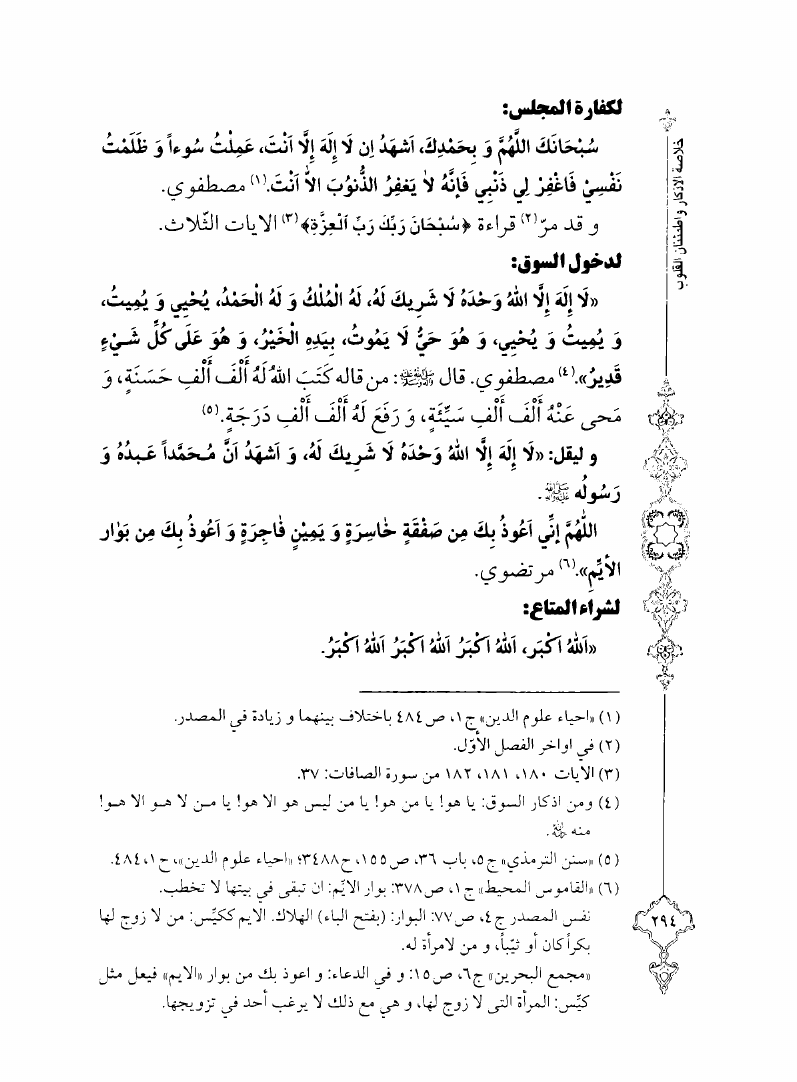 لكفارة المجلس:
سُبْحَانَكَ اللَّهُمَّ وَ بِحَمْدِكَ، اَشهَدُ اِن لَا إِلَهَ إِلَّا اَنتَ، عَمِلْتُ سُوءاً وَ ظَلَمْتُ
نَفْسِيْ فَاغْفِرْ لِي ذَنْبِي فَإِنَّهُ لاَ يَغفِرُ الذُّنوُبَ الاَّ اَنْتَ.(١) مصطفوي.
و قد مرّ(٢) قراءة ﴿سُبْحَانَ رَبِّكَ رَبِّ اَلْعِزَّةِ﴾(٣) الايات الثّلاث.
لدخول السوق:
«لَا إِلَهَ إِلَّا اللهُ وَحْدَهُ لَا شَرِيكَ لَهُ، لَهُ الْمُلْكُ وَ لَهُ الْحَمْدُ، يُحْيِي وَ يُمِيتُ،
وَ يُمِيتُ وَ يُحْيِي، وَ هُوَ حَيٌّ لَا يَمُوتُ، بِيَدِهِ الْخَيْرُ، وَ هُوَ عَلَى كُلِّ شَيْءٍ
قَدِيرٌ».(٤) مصطفوي. قال ﷺ: من قاله كَتَبَ اللهُ لَهُ أَلْفَ أَلْفِ حَسَنَةٍ، وَ
مَحى عَنْهُ أَلْفَ أَلْفِ سَيِّئَةٍ، وَ رَفَعَ لَهُ أَلْفَ أَلْفِ دَرَجَةٍ.(٥)
و ليقل: «لَا إِلَهَ إِلَّا اللهُ وَحْدَهُ لَا شَرِيكَ لَهُ، وَ اَشهَدُ اَنَّ مُحَمَّداً عَبدُهُ وَ
رَسُولُه ﷺ.
اللّٰهُمَّ إِنِّي اَعُوذُ بِكَ مِن صَفْقَةٍ خٰاسِرَةٍ وَ يَمِيْنٍ فٰاجِرَةٍ وَ اَعُوذُ بِكَ مِن بَوٰار
الأيِّمِ».(٦) مرتضوي.
لشراء المتاع:
«اَللهُ اَكْبَر، اَللهُ اَكْبَرُ اَللهُ اَكْبَرُ اَللهُ اَكْبَرُ.
(١) «احياء علوم الدين» ج١، ص٤٨٤ باختلاف بينهما و زيادة في المصدر.
(٢) في اواخر الفصل الأوّل.
(٣) الايات ١٨٠، ١٨١، ١٨٢ من سورة الصافات: ٣٧.
(٤) ومن اذكار السوق: يا هو! يا من هو! يا من ليس هو الا هو! يا من لا هو الا هو!
منه
(٥) «سنن الترمذي» ج٥، باب ٣٦، ص١٥٥، ح٣٤٨٨؛ «احياء علوم الدين»، ج١، ٤٨٤.
(٦) «القاموس المحيط» ج١، ص٣٧٨: بوار الايّم: ان تبقى في بيتها لا تخطب.
نفس المصدر ج٤، ص٧٧: البوار: (بفتح الباء) الهلاك. الايم ككيِّس: من لا زوج لها
بكراً كان أو ثيّباً، و من لامرأة له.
«مجمع البحرين» ج٦، ص١٥: و في الدعاء: و اعوذ بك من بوار «الايم» فيعل مثل
كيِّس: المرأة التى لا زوج لها، و هي مع ذلك لا يرغب أحد في تزويجها.
خلاصة الاذكار واطمئنان القلوب
٢٩٤